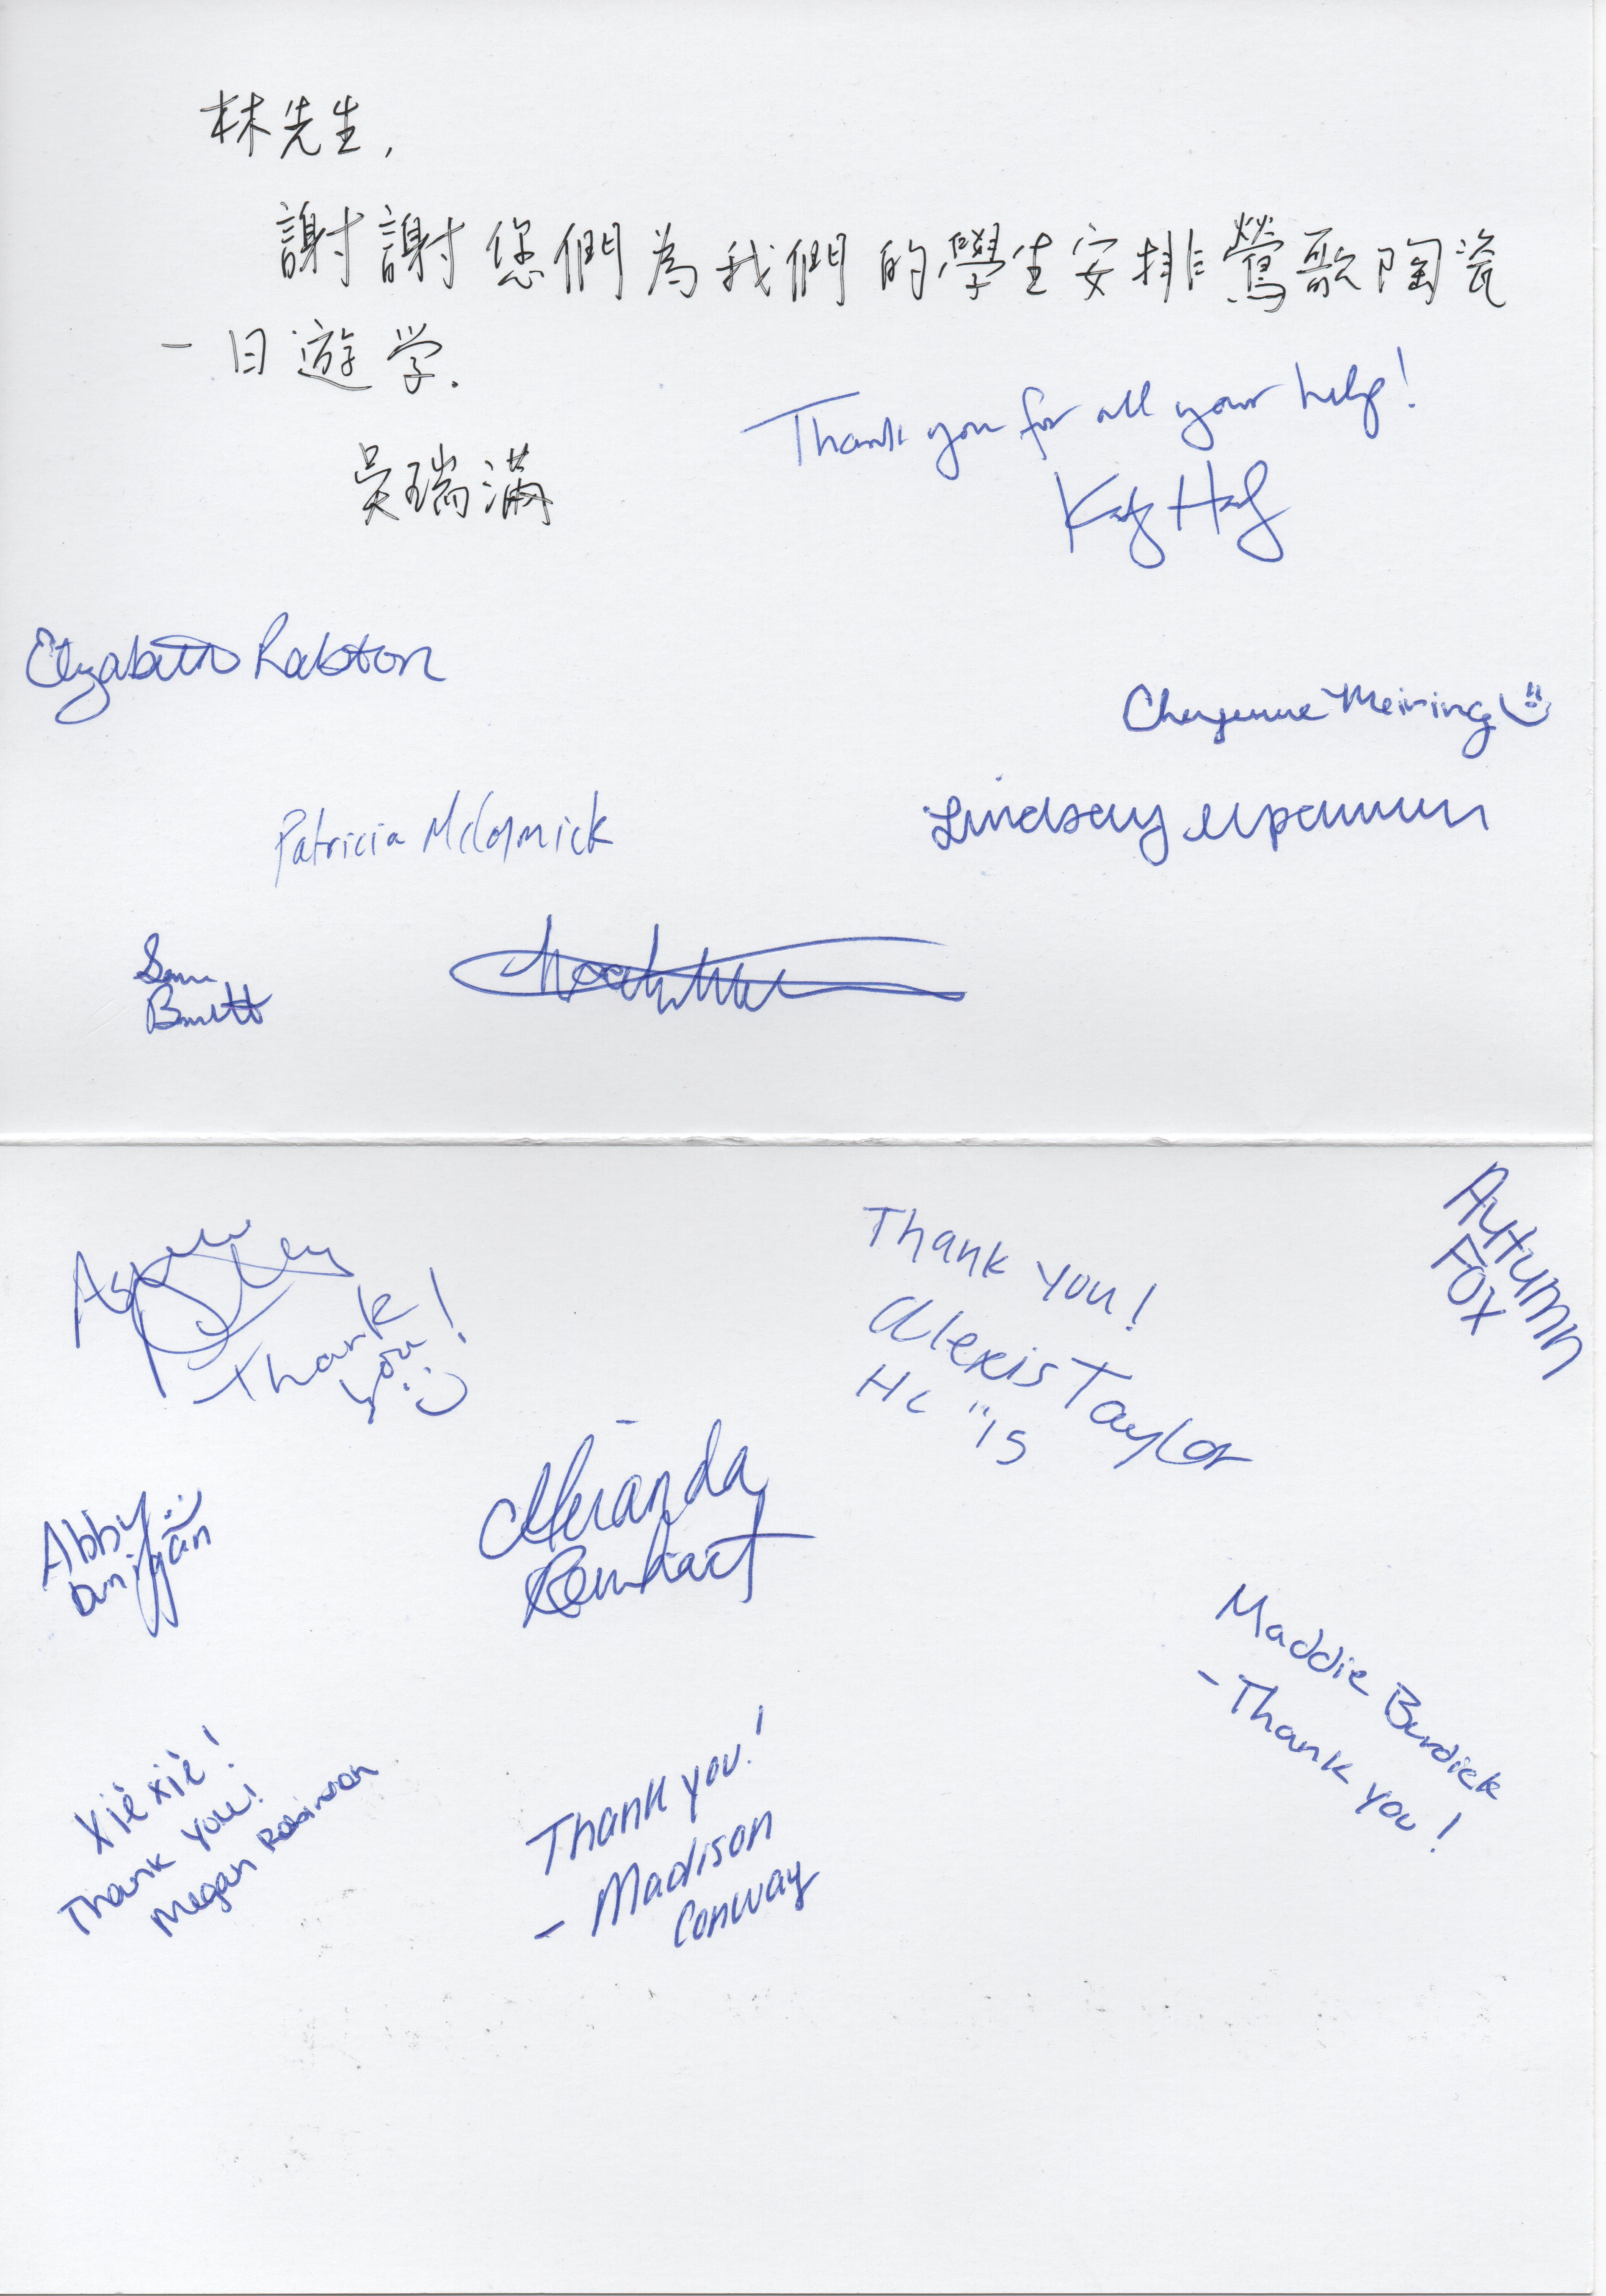 林先生,
謝謝您們為我們的學生安排鶯歌陶瓷
一日遊学.
吳瑞滿
Thank you for all your help!
Elizabeth Ralston
Cheyenne Meining
Patricia McCormick
Lindsay
Sam
Thank you!
Alexis Taylor
HC "15
Autumn
Fox
Thank
you!
Abby
Miranda
Maddie Burdick
- Thank you!
Xiè xiè!
Thank you!
Megan Robinson
Thank you!
- Madison
Conway